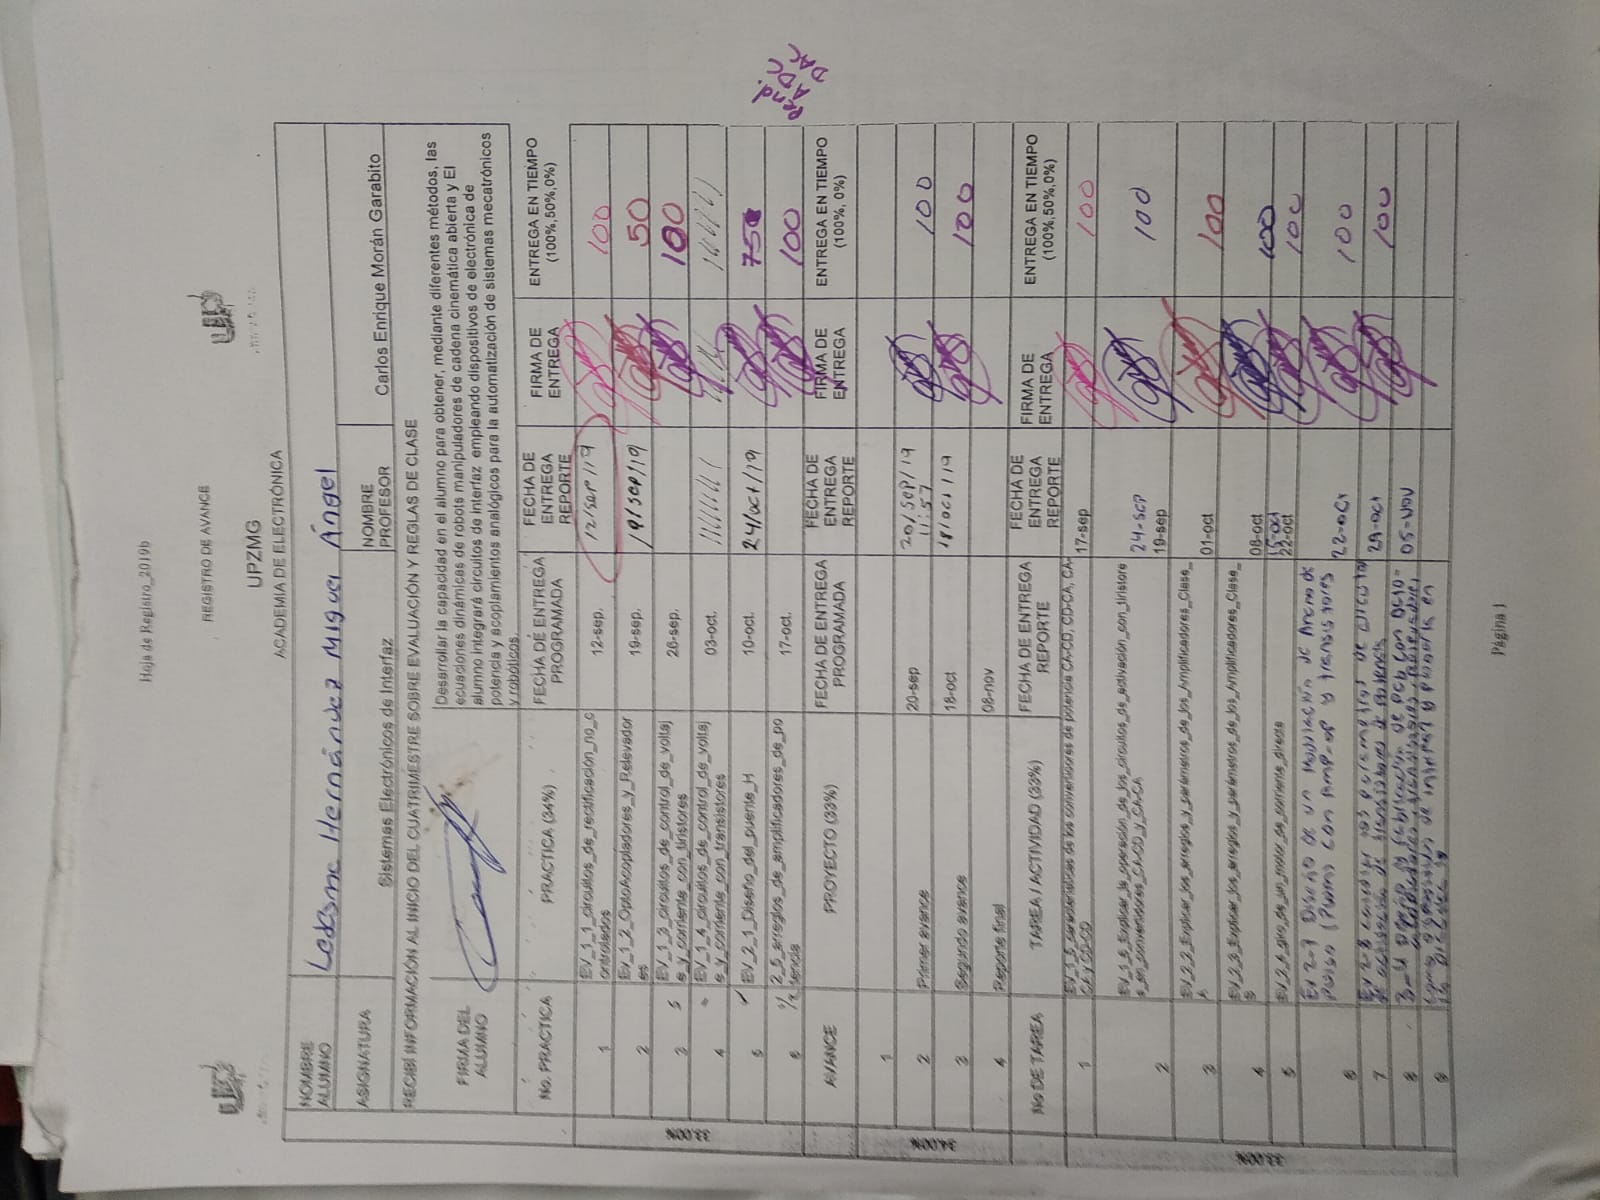 Hoja de Registro_2019b
REGISTRO DE AVANCE
UPZMG
ACADEMIA DE ELECTRÓNICA
NOMBRE ALUMNO
Ledesma Hernández Miguel Ángel
ASIGNATURA
Sistemas Electrónicos de Interfaz
NOMBRE PROFESOR
Carlos Enrique Morán Garabito
RECIBÍ INFORMACIÓN AL INICIO DEL CUATRIMESTRE SOBRE EVALUACIÓN Y REGLAS DE CLASE
FIRMA DEL ALUMNO
Desarrollar la capacidad en el alumno para obtener, mediante diferentes métodos, las
ecuaciones dinámicas de robots manipuladores de cadena cinemática abierta y El
alumno integrará circuitos de Interfaz empleando dispositivos de electrónica de
potencia y acoplamientos analógicos para la automatización de sistemas mecatrónicos
y robóticos.
33.00%
No. PRACTICA
PRÁCTICA (34%)
FECHA DE ENTREGA PROGRAMADA
FECHA DE ENTREGA REPORTE
FIRMA DE ENTREGA
ENTREGA EN TIEMPO (100%,50%,0%)
1 EV_1_1_circuitos_de_rectificacion_no_c 12-sep. 12/sep/19 100
ontrolados
2 EV_1_2_OptoAcopladores_y_Relevador 19-sep. 19/sep/19 50
es
3 EV_1_3_circuitos_de_control_de_voltaj 26-sep. 100
e_y_corriente_con_tiristores
4 EV_1_4_circuitos_de_control_de_voltaj 03-oct.
e_y_corriente_con_transistores
5 EV_2_1_Diseño_del_puente_H 10-oct. 24/oct/19 75
6 2_5_arreglos_de_amplificadores_de_po 17-oct. 100
tencia
Pend.
ADC
DAC
34.00%
AVANCE
PROYECTO (33%)
FECHA DE ENTREGA PROGRAMADA
FECHA DE ENTREGA REPORTE
FIRMA DE ENTREGA
ENTREGA EN TIEMPO (100%, 0%)
1
2 Primer avance 20-sep 20/sep/19 11:57 100
3 Segundo avance 18-oct 18/oct/19 100
4 Reporte final 08-nov
33.00%
No DE TAREA
TAREA / ACTIVIDAD (33%)
FECHA DE ENTREGA REPORTE
FECHA DE ENTREGA REPORTE
FIRMA DE ENTREGA
ENTREGA EN TIEMPO (100%,50%,0%)
1 EV_1_5_características de los convertidores de potencia CA-CD, CD-CA, CA- 17-sep 100
CA y CD-CD
2 EV_1_6_Explicar_la_operación_de_los_circuitos_de_activación_con_tiristore 24-sep 19-sep 100
s_en_convertidores_CA-CD_y_CA-CA
3 EV_2_2_Explicar_los_arreglos_y_parámetros_de_los_Amplificadores_Clase_ 01-oct 100
A
4 EV_2_3_Explicar_los_arreglos_y_parámetros_de_los_Amplificadores_Clase_ 08-oct 100
B
5 EV_2_4_giro_de_un_motor_de_corriente_directa 15-oct 22-oct 100
6 EV 2.7 Diseño de un Modulación de Ancho de 22-oct 100
pulso (PWM) con Amp-op y transistores
7 EV 2.8 29-oct 100
8 05-nov
9
Página 1